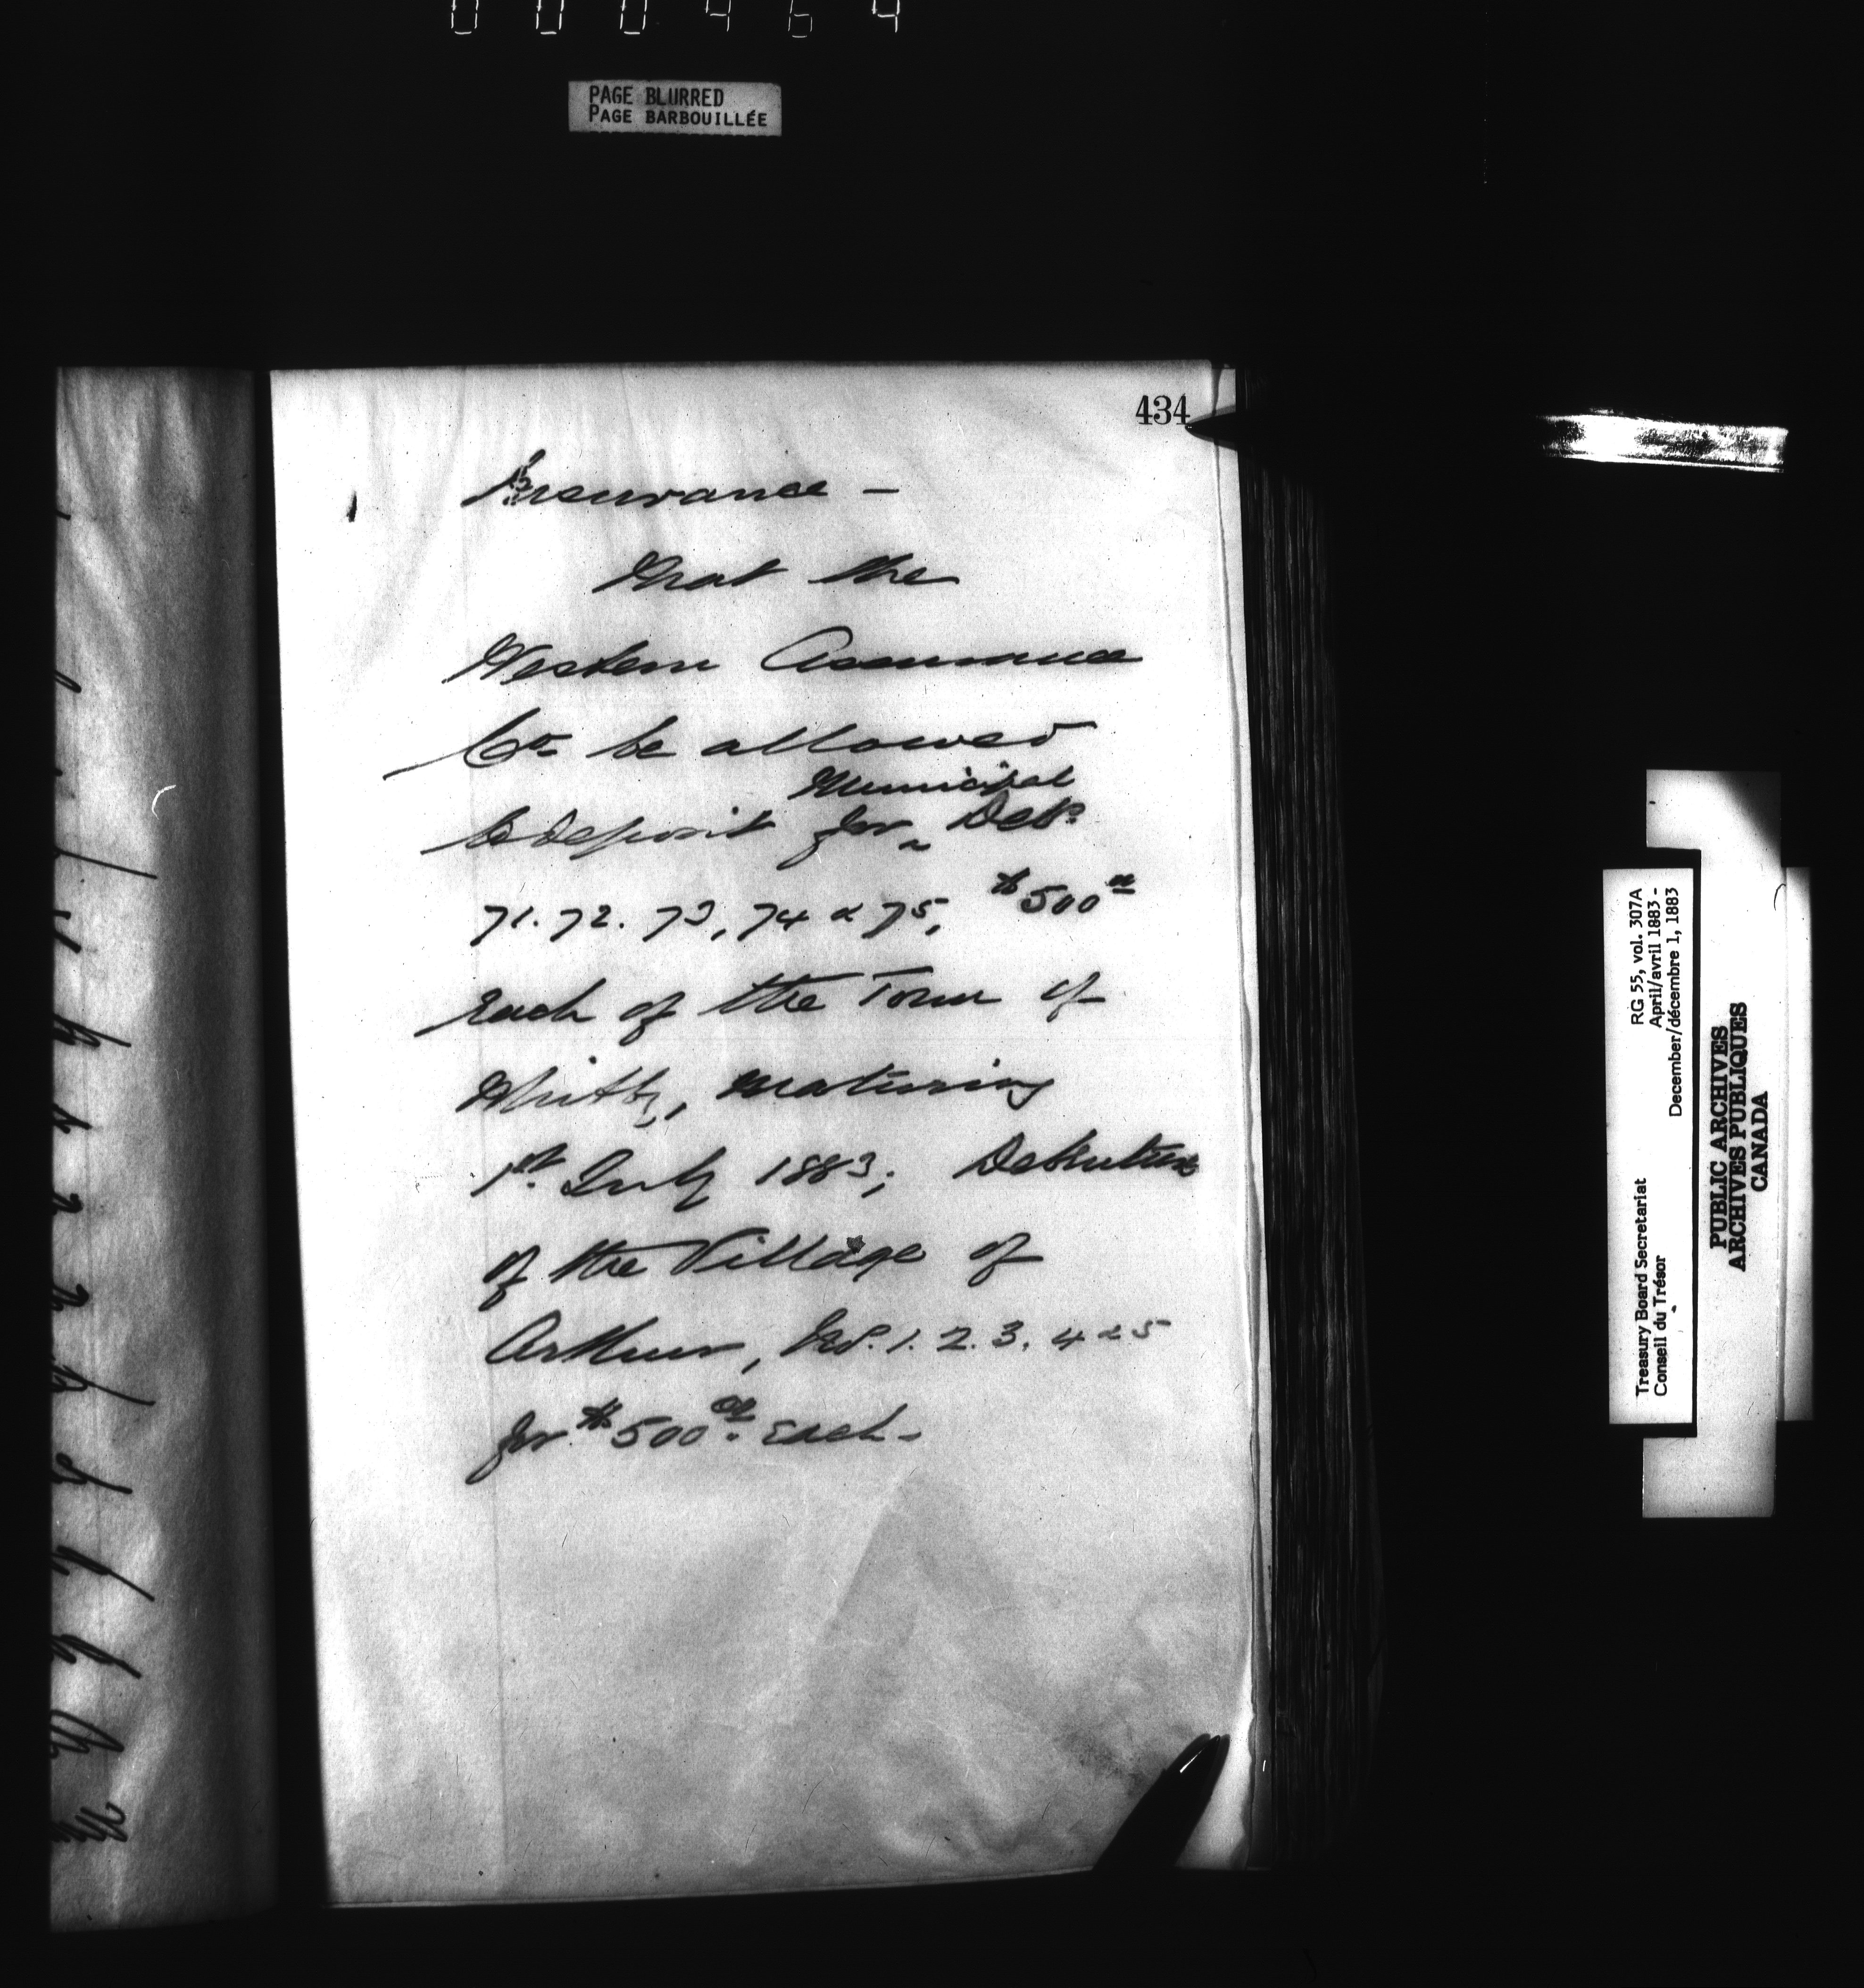 000464
PAGE BLURRED
PAGE BARBOUILLÉE
434
Insurance -
That the
Western Assurance
Co. be allowed
Municipal
to deposit for ‸ Debs.
71. 72. 73, 74 & 75, $500 00
each of the Town of
Whitby, maturing
1st July 1883; Debentures
of the Village of
Arthur, No. 1. 2. 3. 4 & 5
for $500 00 each-
Treasury Board Secretariat RG 55, vol. 307A
Conseil du Trésor April/avril 1883 -
December/décembre 1, 1883
PUBLIC ARCHIVES
ARCHIVES PUBLIQUES
CANADA